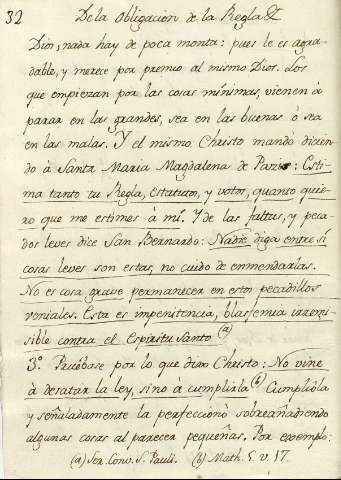 32 De la Obligacion de la Regla &
Dios, nada hay de poca monta: pues le es agra-
dable, y merece por premio al mismo Dios. Los
que empiezan por las cosas mínimas, vienen à
parar en las grandes, sea en las buenas ò sea
en las malas. Y el mismo Christo mandò dicien-
do à Santa Maria Magdalena de Pazis: Esti-
ma tanto tu Regla, estatutos, y votos, quanto quie-
ro que me estimes à mi. Y de las faltas, y peca-
dos leves dice San Bernardo: Nadie diga entre sí
cosas leves son estas, no cuido de enmendarlas.
No es cosa grave permanecer en estos pecadillos
veniales. Esta es impenitencia, blasfemia irremi-
sible contra el Espiritu Santo (a)
3º. Pruébase por lo que dixo Christo: No vine
à desatar la ley, sinò à cumplirla (b) Cumplióla
y señaladamente la perfeccionò sobreañadiendo
algunas cosas al parecer pequeñas. Por exemplo:
(a) Ser. Conv. S. Pauli. (b) Math. 5. v. 17.